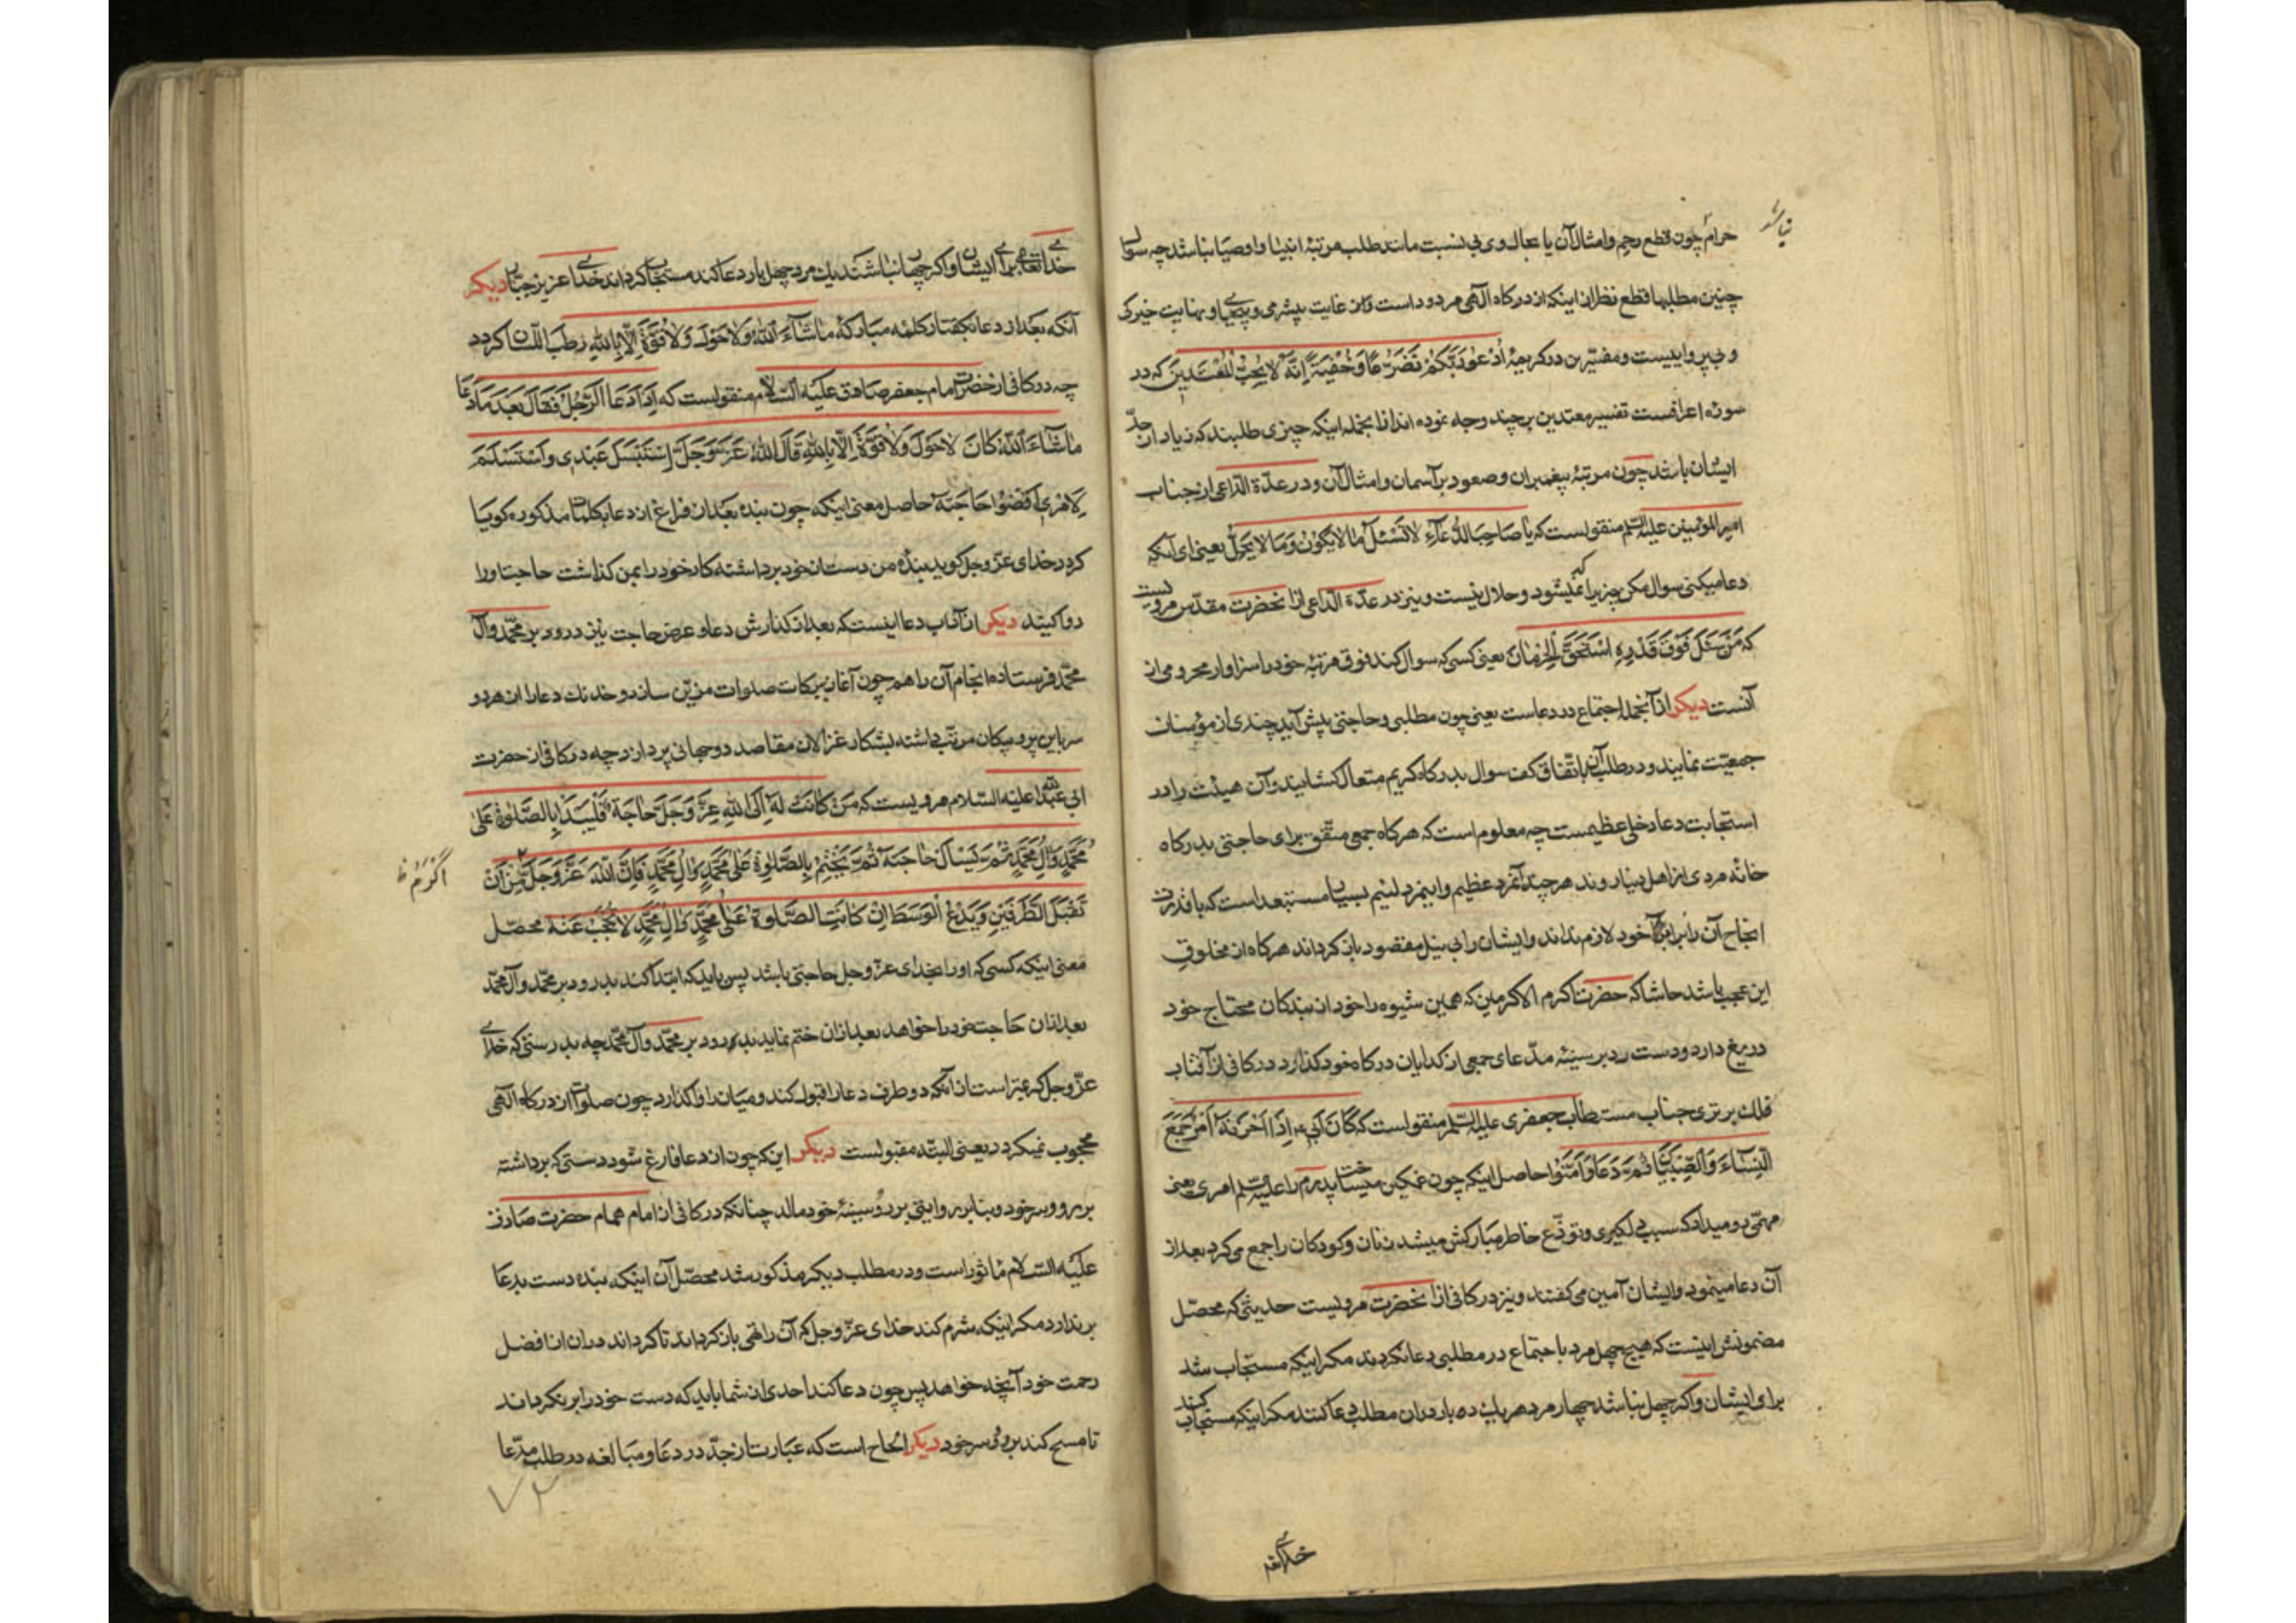 نباشد
حرام چون قطع رحم و امثال آن یا محال و بی نسبت مانند طلب مرتبهٔ انبیا و اوصیا نباشد چه سوال
چنین مطلبها قطع نظر از اینکه از درکاه الهی مردود است و از غایت بیشرمی و بیحیایی و نهایت خیرکی
و بی پرواییست و مفسرین در کریمهٔ اُدْعُوا رَبَّکُمْ تَضَرُّعًا وَخُفْیَةً اِنَّهُ لا یُحِبُّ الْمُعْتَدینَ که در
سورهٔ اعرافست تفسیر معتدین بر چند وجه نموده اند از انجمله اینکه چیزی طلبند که زیاد از حدّ
ایشان باشد چون مرتبهٔ پیغمبران و صعود بر آسمان و امثال آن و در عدّة الدّاعی از جناب
امیر المؤمنین علیه السلم منقولست که یا صاحِبَ الدُّعآءِ لا تَسْئَلْ ما لا یَکُونُ وَمَا لا یَحِلُّ یعنی ای آنکه
دعا میکنی سوال مکن چیزیرا که نمیشود و حلال نیست و نیز در عدّة الدّاعی از انحضرت مقدّس مرویست
که مَنْ سَئَلَ فَوْقَ قَدْرِهِ اسْتَحَقَّ الْحِرْمانَ یعنی کسی که سوال کند فوق مرتبهٔ خود را سزاوار محرومی از
آنست دیکر از آنجمله اجتماع در دعاست یعنی چون مطلبی و حاجتی پیش آید چندی از مؤمنان
جمعیّت نمایند و در طلب آن باتّفاق کف سوال بدرکاه کریم متعال کشایند و آن هیئت را در
استجابت دعا دخلی عظیمست چه معلوم است که هرکاه جمعی متّفق برای حاجتی بدرکاه
خانهٔ مردی از اهل دنیا روند هر چند آنمرد عظیم و اینمرد لئیم بسیار مستبعد است که با قدرت
انجاح آن را بر خود لازم نداند و ایشان را بی نیل مقصود باز کرداند هرکاه از مخلوق
این عجب باشد حاشا که حضرت اکرم الاکرمین که همین شیوه را خود از بندکان محتاج خود
دریغ دارد و دست رد بر سینهٔ مدّعای جمعی از کدایان درکاه خود کذارد در کافی از آفتاب
فلک برتری جناب مستطاب جعفری علیه السلم منقولست که کانَ اَبی اِذا اَحْزَنَهُ اَمْرٌ جَمَعَ
النِّسآءَ وَالصِّبْیانَ ثُمَّ دَعا وَاَمَّنُوا حاصل اینکه چون غمکین میساخت پدرم را علیه السلم امری یعنی
مهمّی رو میداد که سبب دلکیری و توزّع خاطر مبارکش میشد زنان و کودکان را جمع می کرد بعد از
آن دعا مینمود و ایشان آمین می کفتند و نیز در کافی از انحضرت مرویست حدیثی که محصّل
مضمونش اینست که هیچ چهل مرد باجتماع در مطلبی دعا نکردند مکر اینکه مستجاب شد
برای ایشان و اکر چهل نباشد چهار مرد هر یک ده بار در ان مطلب دعا کنند مکر اینکه مستجاب کند
خدای تعالی برای ایشان و اکر چهار نباشند یک مرد چهل بار دعا کند مستجاب کرداند خدای عزیز جبّار دیکر
آنکه بعد از دعا بکفتار کلمهٔ مبارکهٔ ماشآءَ اللّٰهُ وَلا حَوْلَ وَلا قُوَّةَ اِلّا بِاللّٰهِ رطب اللّسان کردد
چه در کافی از حضرت امام جعفر صادق علیه السّلام منقولست که اِذا دَعَا الرَّجُلُ فَقالَ بَعْدَ ما دَعا
ماشآءَ اللّٰهُ کانَ لاحَوْلَ وَلاقُوَّةَ اِلّا بِاللّٰهِ قالَ اللّٰهُ عَزَّوَجَلَّ اِسْتَبْسَلَ عَبْدِی وَاسْتَسْلَمَ
لِاَمْرِی اقْضُوا حاجَتَهُ حاصل معنی اینکه چون بنده بعد از فراغ از دعا بکلمات مذکوره کویا
کردد خدای عزّ و جل کوید بنده من دست از خود برداشته کار خود را بمن کذاشت حاجت او را
روا کنید دیکر از آداب دعا اینست که بعد از کذارش دعا و عرض حاجت نیز درود بر محمّد و آل
محمّد فرستاده انجام آن را هم چون آغاز ببرکات صلوات مزیّن سازد و خدنک دعا را از هر دو
سر باین پر و پیکان مرتّب داشته بشکار غزالان مقاصد دوجهانی پردازد چه در کافی از حضرت
ابی عبد اللّه علیه السّلام مرویست که مَنْ کانَتْ لَهُ اِلَی اللّٰهِ عَزَّ وَجَلَّ حاجَةٌ فَلْیَبْدَأْ بِالصَّلوةِ عَلی
مُحَمَّدٍ وَآلِ مُحَمَّدٍ ثُمَّ یَسْأَلُ حاجَتَهُ ثُمَّ یَخْتِمُ بِالصَّلوةِ عَلی مُحَمَّدٍ وَآلِ مُحَمَّدٍ فَاِنَّ اللّٰهَ عَزَّوَجَلَّ مِنْ اَنْ
اَکْرَمُ ظ
تَقْبَلَ الطَّرَفَیْنِ وَیَدَعَ الْوَسَطَ اِنْ کانَتِ الصَّلوةُ عَلی مُحَمَّدٍ وَآلِ مُحَمَّدٍ لا تُحْجَبُ عَنْهُ محصّل
معنی اینکه کسی که او را بخدای عزّ و جل حاجتی باشد پس باید که ابتدا کند بدرود بر محمّد و آل محمّد
بعد از ان حاجت خود را خواهد بعد از ان ختم نماید بدرود بر محمّد و آل محمّد چه بدرستی که خدای
عزّ و جل کریمتر است از آنکه دو طرف دعا را قبول کند و میان را واکذارد چون صلوات از درکاه الهی
محجوب نمیکردد یعنی البتّه مقبولست دیکر اینکه چون از دعا فارغ شود دستی که برداشته
بر رو و سر خود و بنا بر روایتی بر رو و سینهٔ خود مالد چنانکه در کافی از امام همام حضرت صادق
علیه السّلام مأثور است و در مطلب دیکر مذکور شد محصّل آن اینکه بنده دست بدعا
برندارد مکر اینکه شرم کند خدای عزّ و جل که آن را تهی باز کرداند تا کرداند در ان از افضل
رحمت خود آنچه خواهد پس چون دعا کند احدی از شما باید که دست خود را برنکرداند
تا مسح کند بر رو و سر خود دیکر الحاح است که عبارت از جدّ در دعا و مبالغه در طلب مدّعا
۷۲